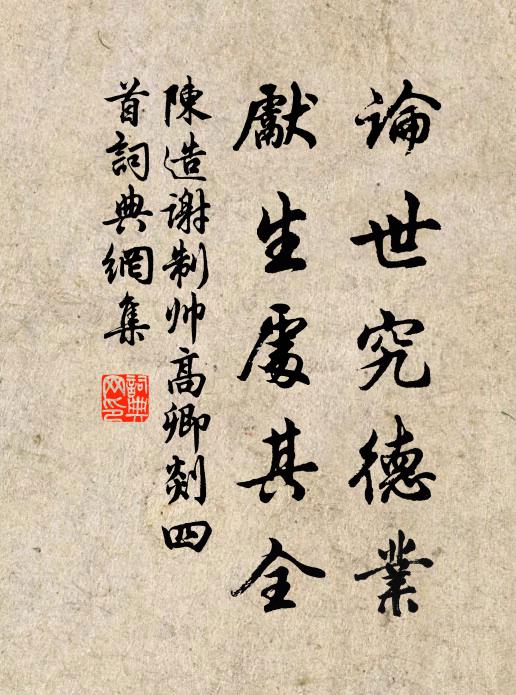 論世究德業
獻生處其全
陳造謝制帅高卿剡四
首詞典網集
詞典
网印